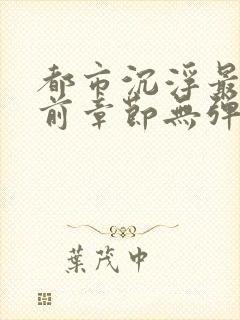 都市沉浮最
前章節無彈
葉茂中